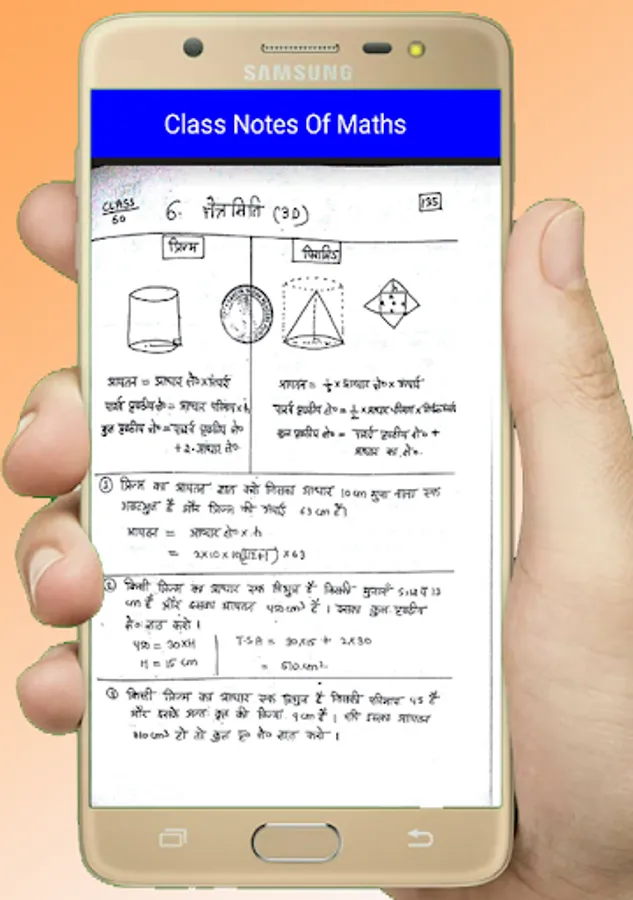 SAMSUNG
Class Notes Of Maths
CLASS
60
6. क्षेत्रमिति (3D)
135
प्रिज्म
पिरामिड
आयतन = आधार क्षे० × ऊंचाई
पार्श्व पृष्ठीय क्षे० = आधार परिमाप × h
कुल पृष्ठीय क्षे० = पार्श्व पृष्ठीय क्षे०
+ 2 · आधार क्षे०
आयतन = 1/3 × आधार क्षे० × ऊंचाई
पार्श्व पृष्ठीय क्षे० = 1/2 × आधार परिमाप ×
कुल पृष्ठीय क्षे० = पार्श्व पृष्ठीय क्षे० +
आधार का क्षे०
① प्रिज्म का आयतन ज्ञात करो जिसका आधार 10 cm भुजा वाला एक
अष्टभुज है और प्रिज्म की ऊंचाई 63 cm है।
आयतन = आधार क्षे० × h
= 2×10×10 × 63
② किसी प्रिज्म का आधार एक त्रिभुज है जिसकी भुजाएँ 5, 12 व 13
cm है और इसका आयतन 450 cm³ है। इसका कुल पृष्ठीय
क्षे० ज्ञात करो।
450 = 30×H
H = 15 cm
T.S.A = 30×15 + 2×30
= 510 cm²
③ किसी प्रिज्म का आधार एक त्रिभुज है जिसकी परिमाप 45 है
और इसके अन्तः वृत्त की त्रिज्या 9 cm है। यदि इसका आयतन
810 cm³ हो तो कुल पृ० क्षे० ज्ञात करो।